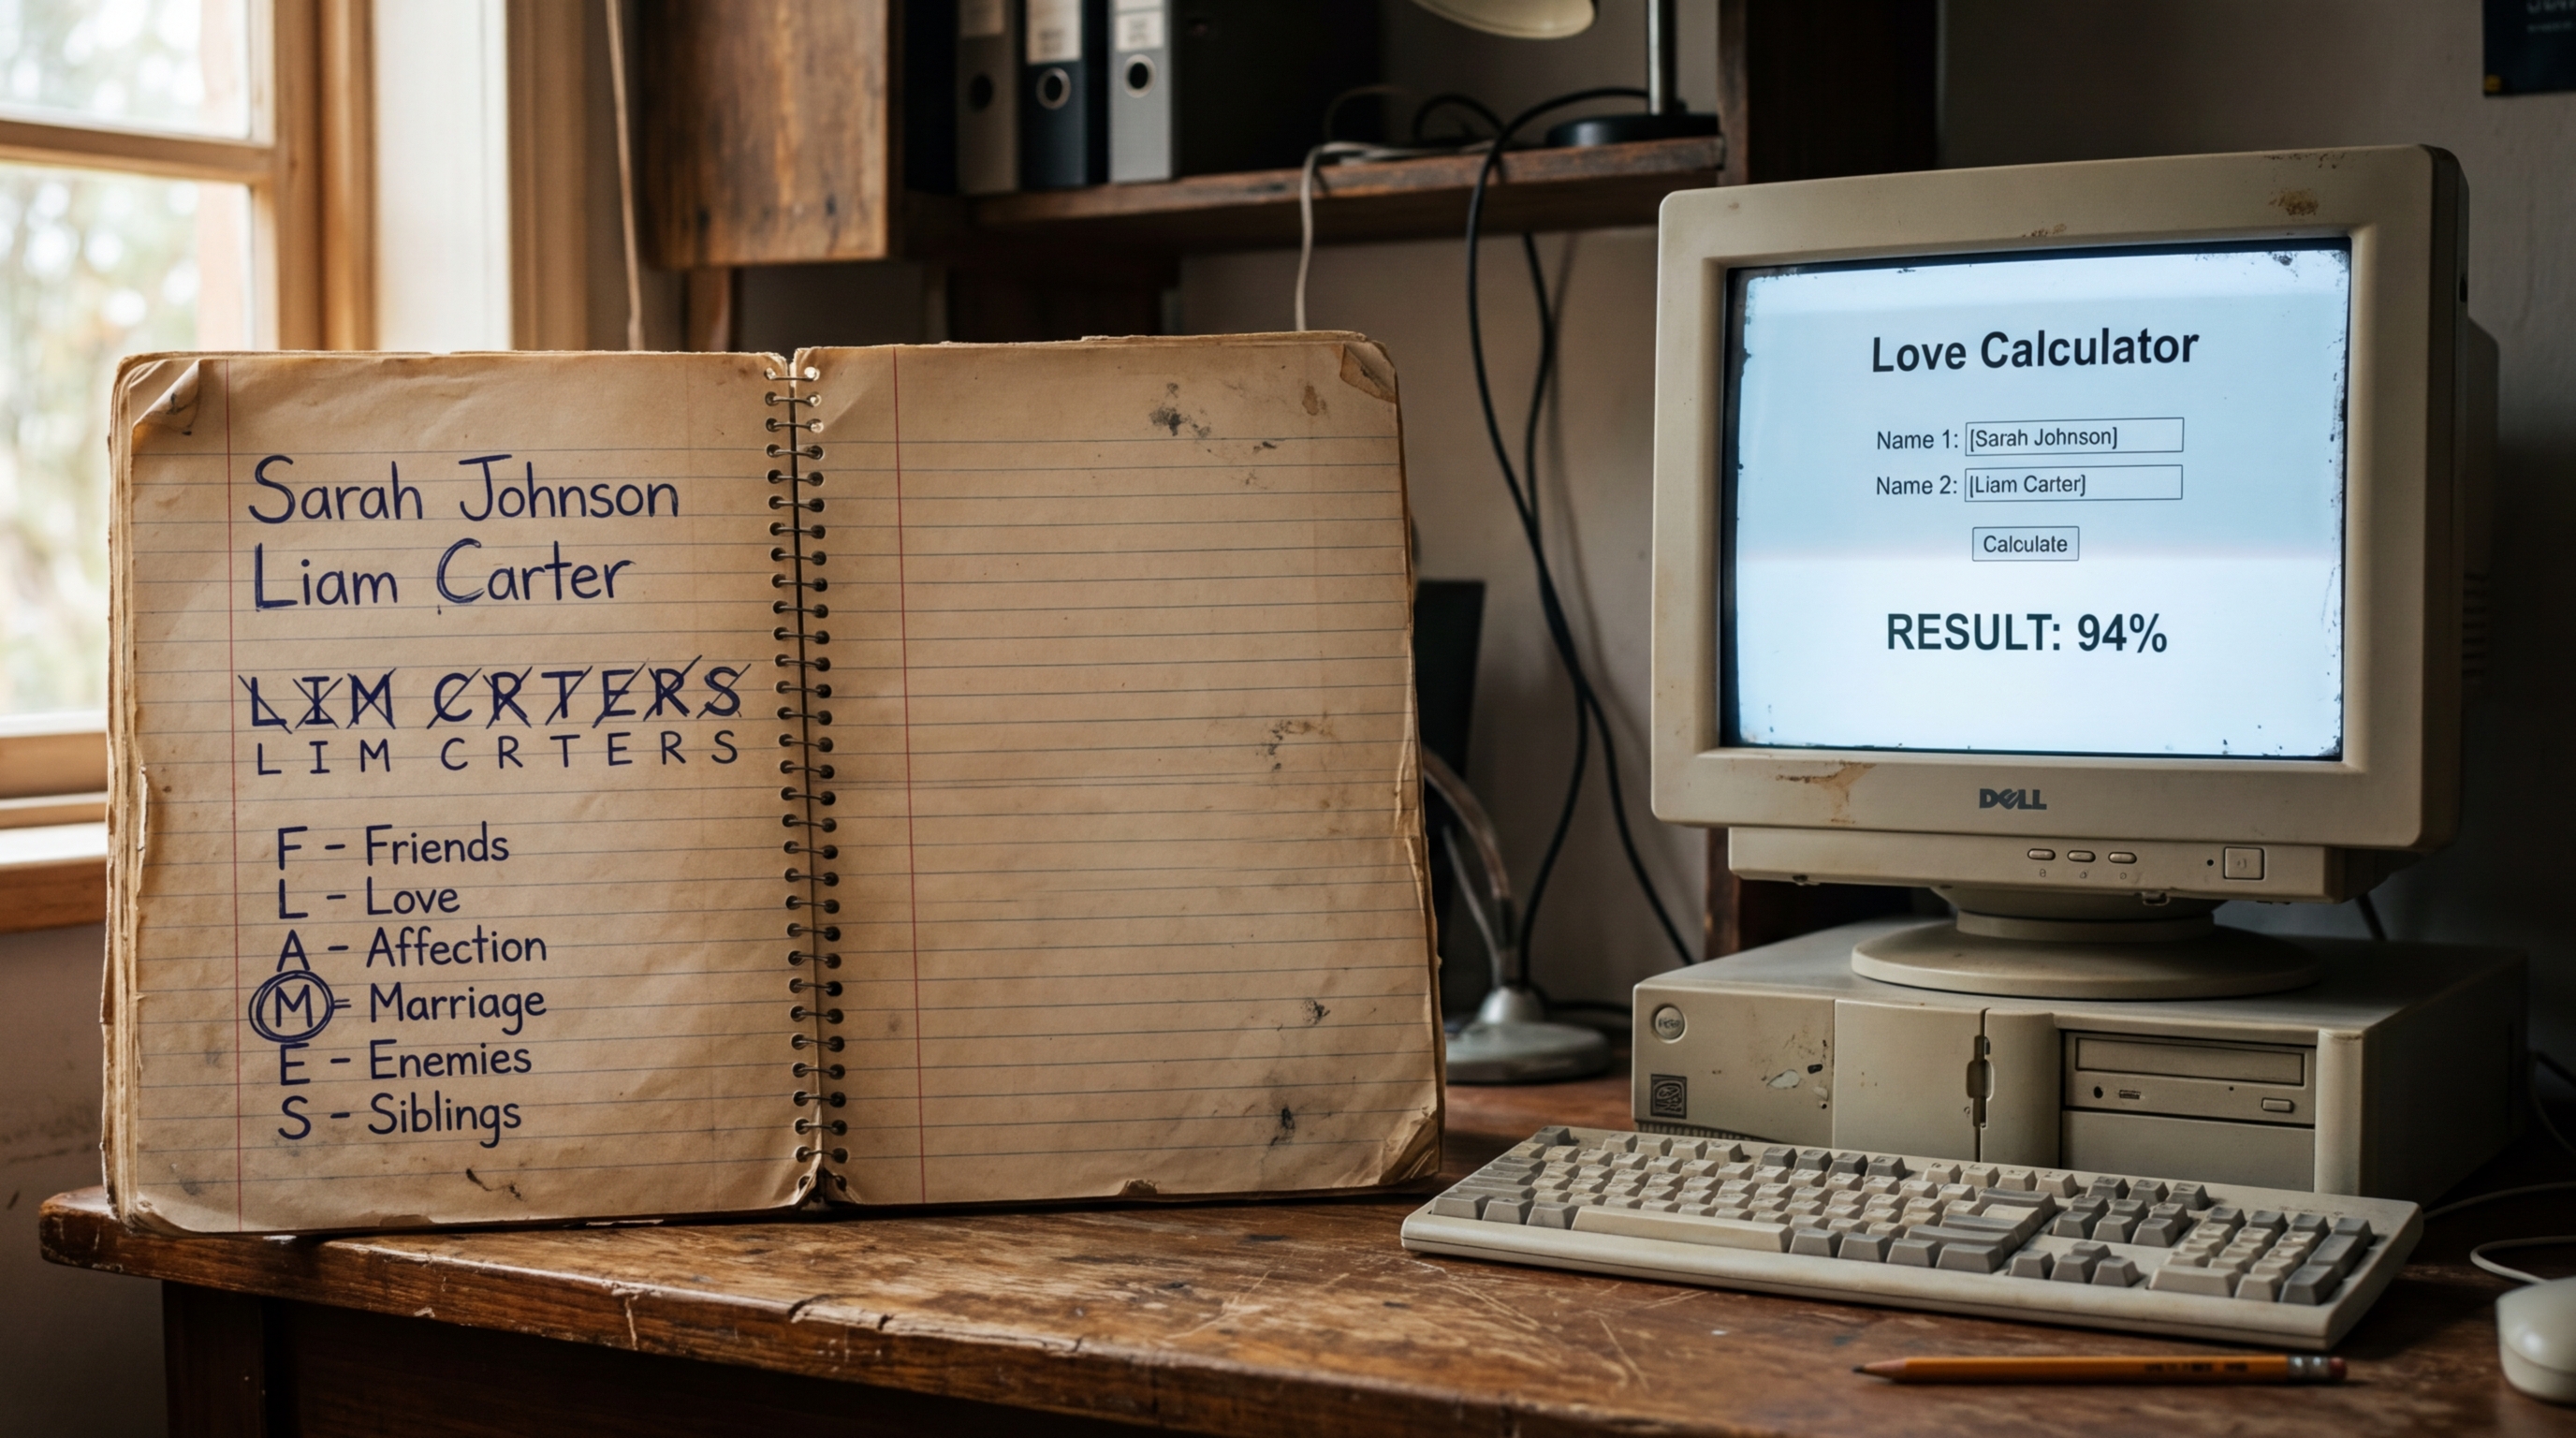 Sarah Johnson
Liam Carter
LIM CRTERS
LIM CRTERS
F - Friends
L - Love
A - Affection
M = Marriage
E - Enemies
S - Siblings
Love Calculator
Name 1: [Sarah Johnson]
Name 2: [Liam Carter]
Calculate
RESULT: 94%
DELL